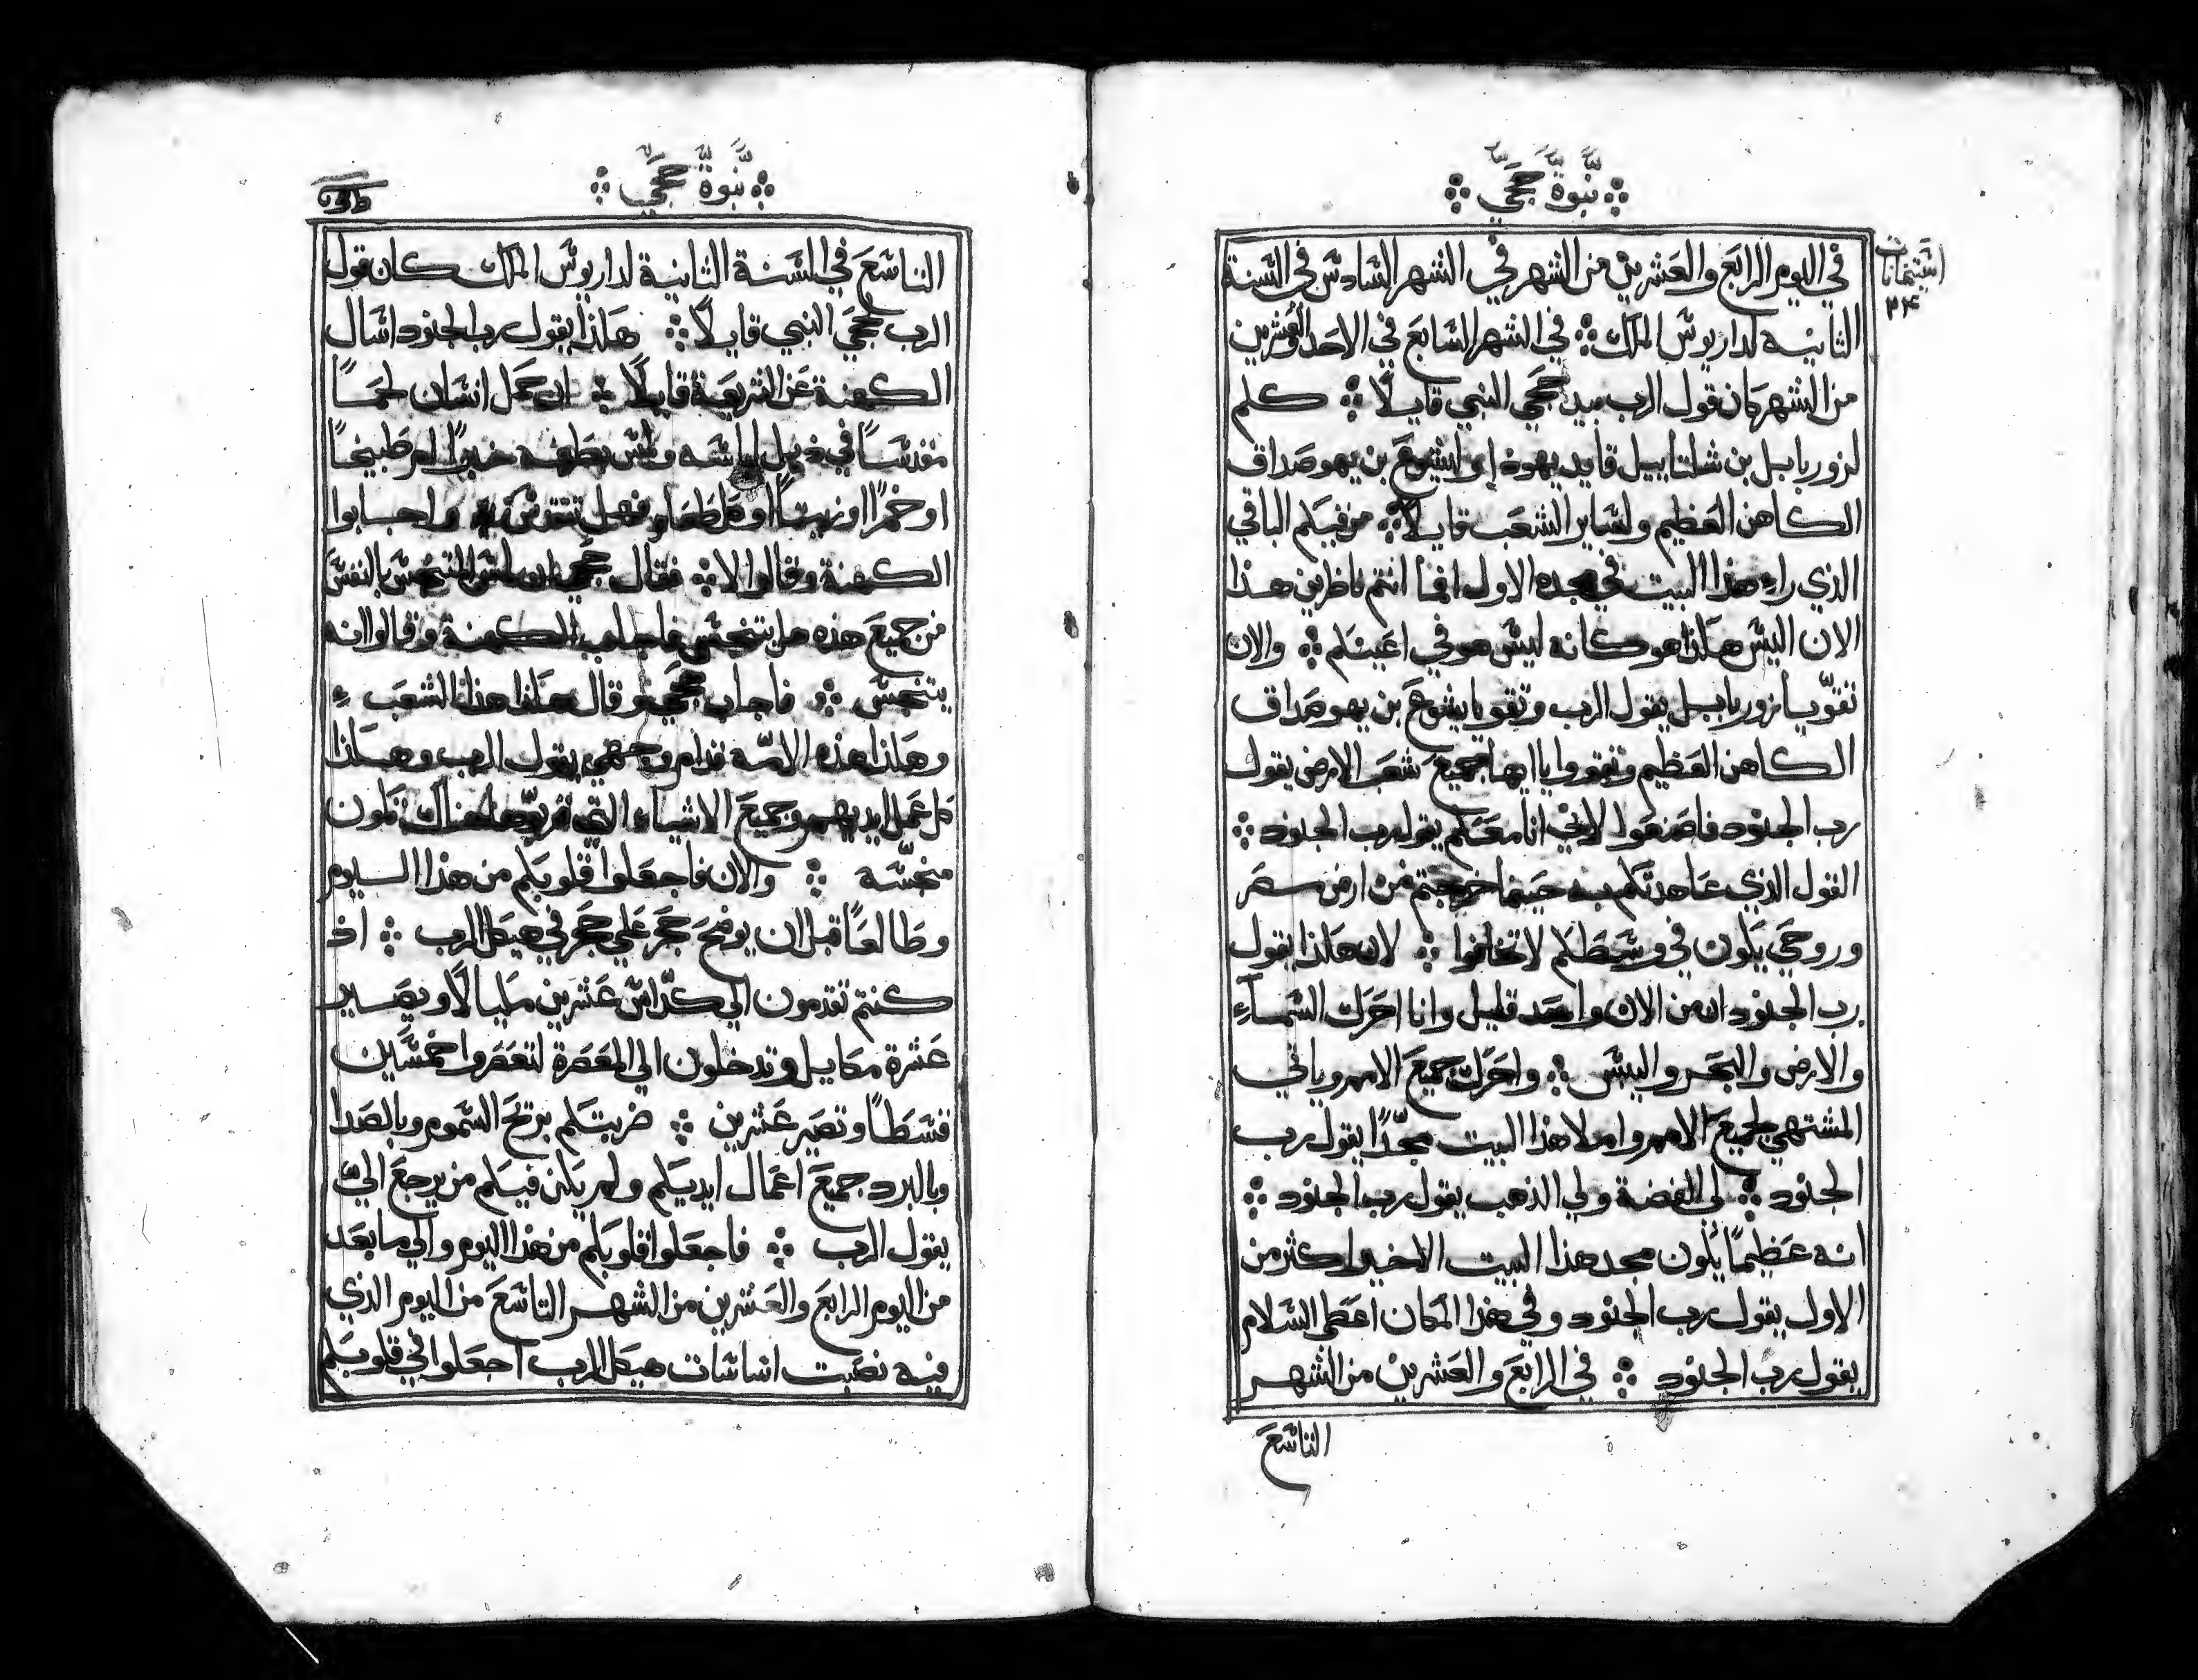 نبوة حجي
اشتمانات
٢٤
في اليوم الرابع والعشرين من الشهر في الشهر السادس في السنة
الثانية لداريوس الملك في الشهر السابع في الاحد والعشرين
من الشهر كان قول الرب بيد حجي النبي قايلًا كلم
لزوربابل بن شلتاييل قايد يهودا ويشوع بن يهوصداق
الكاهن العظيم ولساير الشعب قايلًا من فيكم الباقي
الذي راء هذا البيت في مجده الاول افما انتم ناظرين هذا
الان اليس هكذا هو كانه ليس هو في اعينكم والان
تقوّ يا زوربابل يقول الرب وتقو يا يشوع بن يهوصداق
الكاهن العظيم وتقووا يا ايها جميع شعب الارض يقول
رب الجنود فاصنعوا لاني انا معكم يقول رب الجنود
القول الذي عاهدتكم به حينما خرجتم من ارض مصر
وروحي يكون في وسطكم لا تخافوا لان هكذا يقول
رب الجنود ان من الان واحد قليل وانا احرك السمآء
والارض والبحر واليبس واحرك جميع الامم وياتي
المشتهي لجميع الامم واملا هذا البيت مجدًا يقول رب
الجنود لي الفضة ولي الذهب يقول رب الجنود
انه عظيمًا يكون مجد هذا البيت الاخير اكثر من
الاول يقول رب الجنود وفي هذا المكان اعطى السلام
يقول رب الجنود في الرابع والعشرين من الشهر
التاسع
نبوة حجي
التاسع في السنة الثانية لداريوس الملك كان قول
الرب حجي النبي قايلًا هكذا يقول رب الجنود اسال
الكهنة عن الشريعة قايلًا ان حمل انسان لحمًا
مقدسًا في ذيل لباسه ولمس بطرفه خبزًا ام طبيخًا
او خمرًا او زيتًا او كل طعام فهل تتقدس واجابوا
الكهنة وقالوا لا فقال حجي ان لمس المتنجس بالنفس
من جميع هذه هل يتنجس فاجاب الكهنة وقالوا انه
يتنجس فاجاب حجي وقال هكذا هذا الشعب
وهكذا هذه الامّه قدام وجهي يقول الرب وهكذا
كل عمل ايديهم وجميع الاشياء التي قربّوها هناك تكون
منجسّه والان فاجعلوا قلوبكم من هذا اليوم
وطالعًا قبل ان يوضع حجر على حجر في هيكل الرب اذ
كنتم تقدمون الى كدّاس عشرين مكيالًا ويصير
عشرة مكاييل وتدخلون الى المعصرة لتعصروا خمسين
قسطًا وتصير عشرين ضربتكم بريح السموم وبالصدا
وبالبرد جميع اعمال ايديكم ولم يكن فيكم من يرجع اليّ
يقول الرب فاجعلوا قلوبكم من هذا اليوم والي ما بعد
من اليوم الرابع والعشرين من الشهر التاسع من اليوم الذي
فيه نصبت اساسات هيكل الرب اجعلوا في قلوبكم